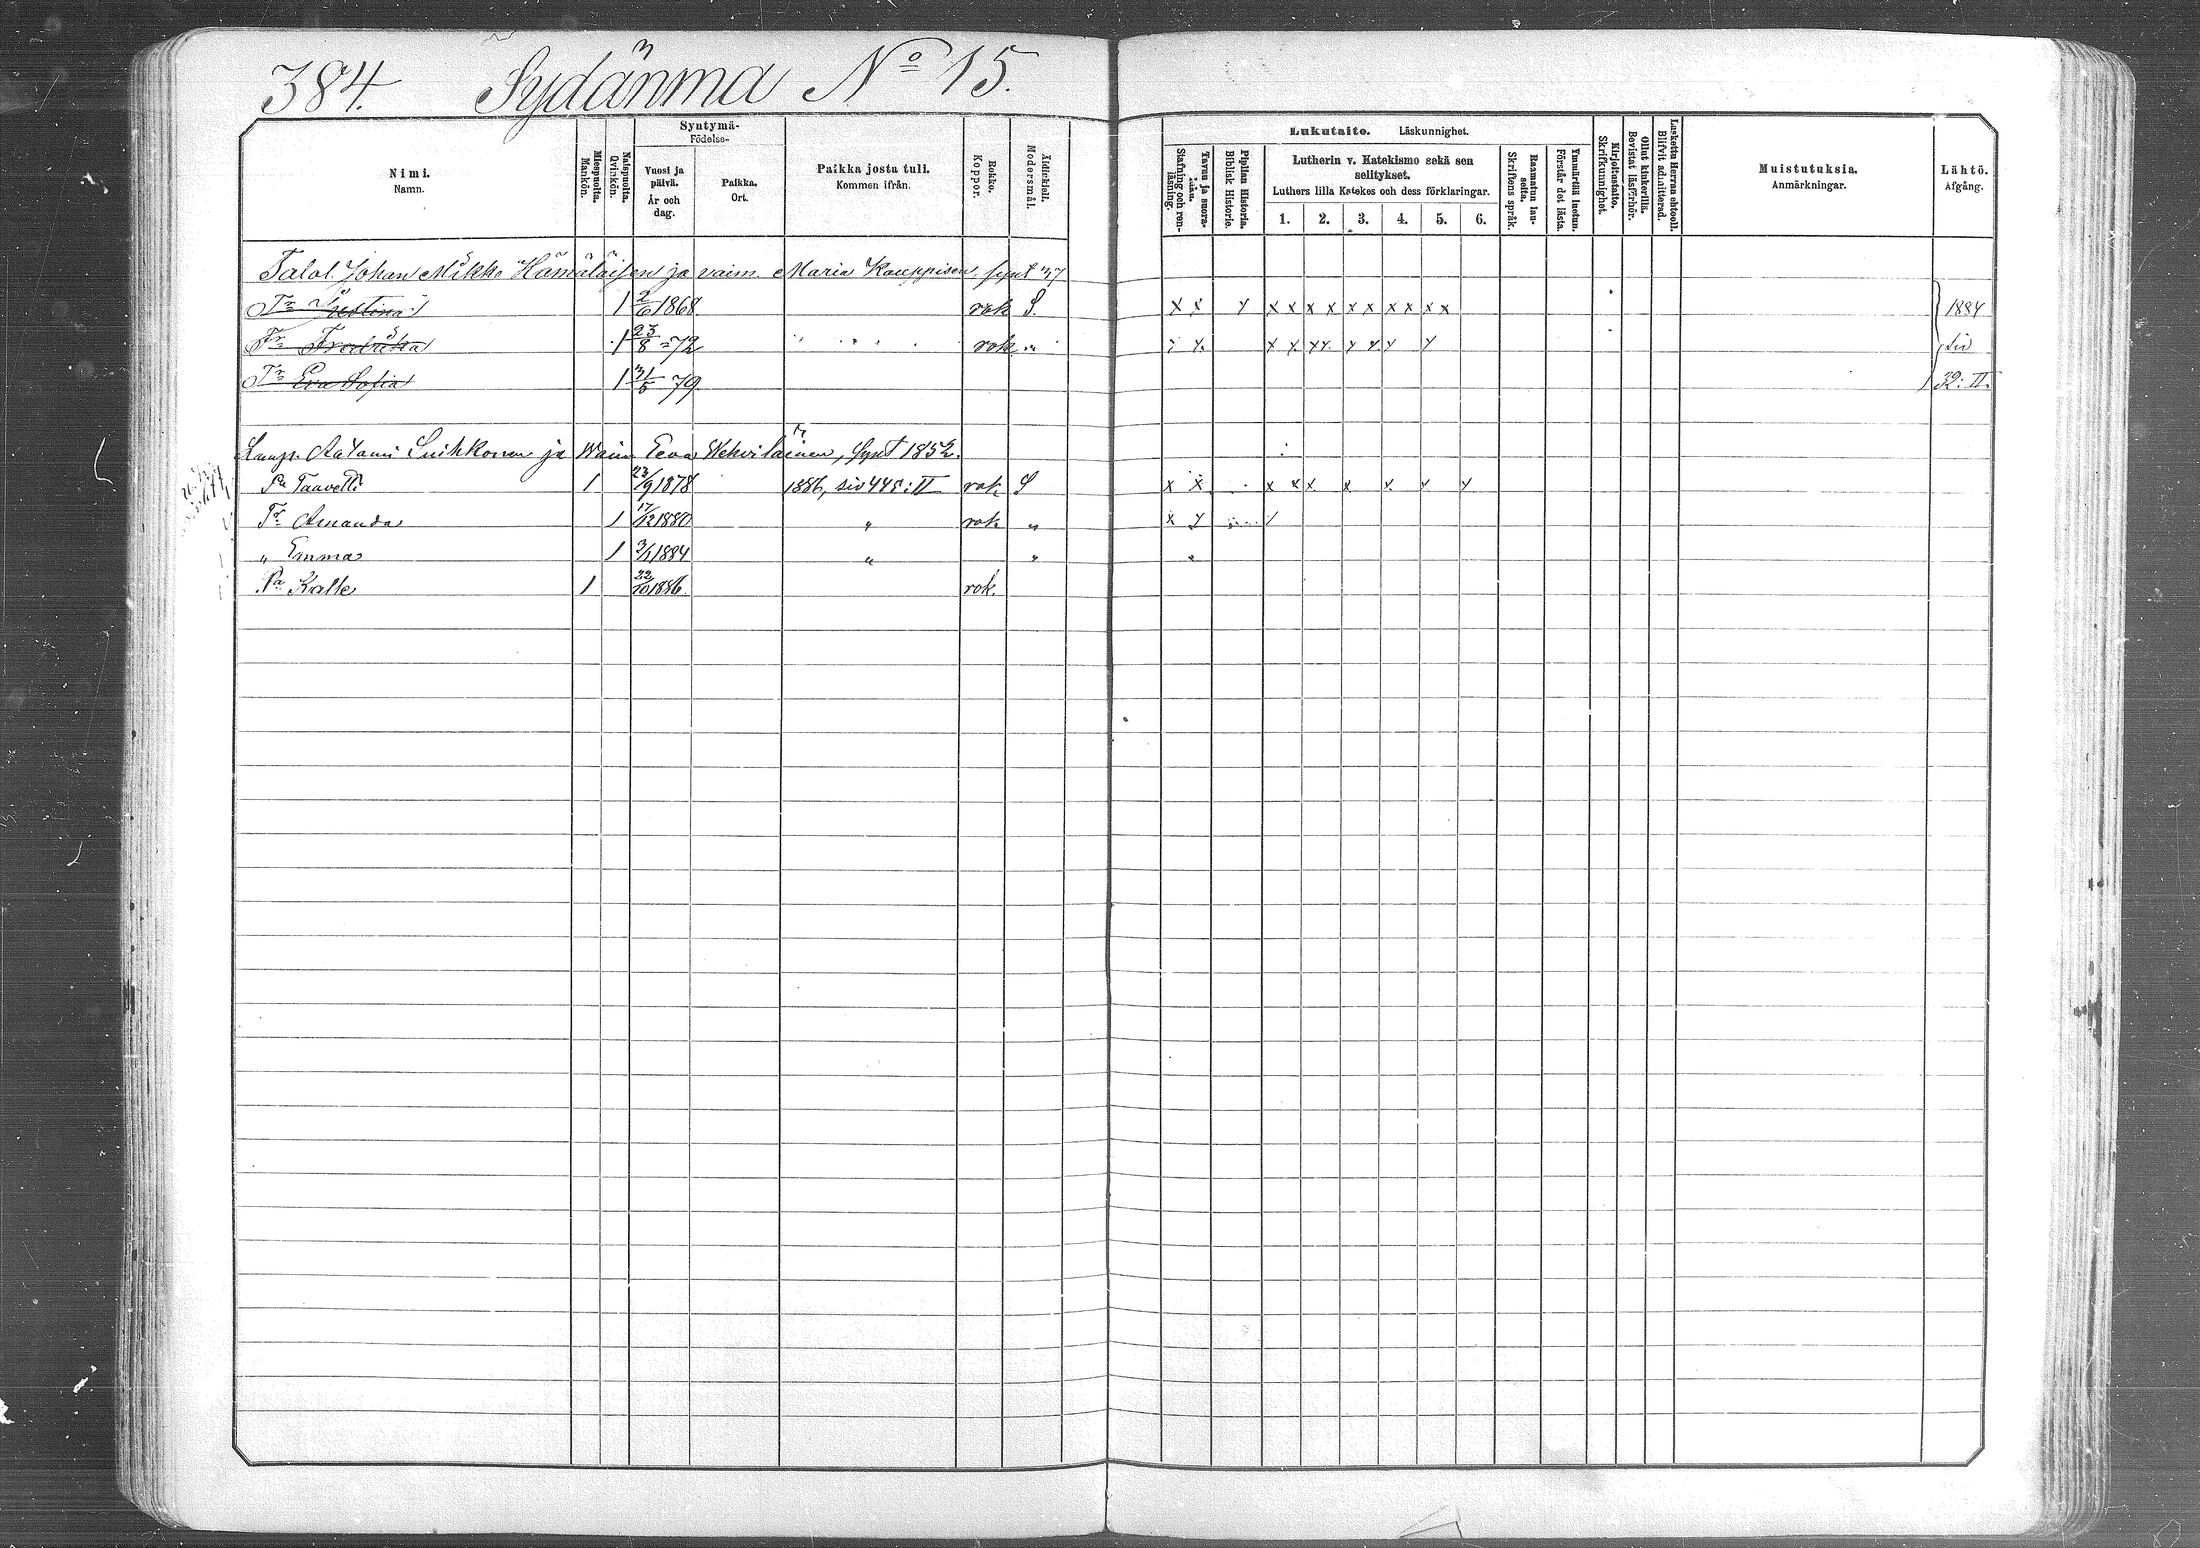 384. Sydänma No 15.
Nimi. Namn.
Miespuolta. Mankön.
Naispuolta. Qvinkön.
Syntymä- Födelse-
Vuosi ja päivä. År och dag.
Paikka. Ort.
Paikka josta tuli. Kommen ifrån.
Rokko. Koppor.
Äidinkieli. Modersmål.
Lukutaito. Läskunnighet.
Tavuu ja suora- luku. Stafning och ren- läsning.
Piplian Historia. Biblisk Historie.
Lutherin v. Katekismo sekä sen selitykset.
Luthers lilla Katekes och dess förklaringar.
1. 2. 3. 4. 5. 6.
Raamatun lau- seita. Skriftens språk.
Ymmärtää luetun. Förstår det lästa.
Kirjoitustaito. Skrifkunnighet.
Ollut kinkerillä. Bevistat läsförhör.
Laskettu Herran ehtooll. Blifvit admitterad.
Muistutuksia. Anmärkningar.
Lähtö. Afgång.
Talol. Johan Mikko Hämäläisen ja vaim. Maria Kauppisen, synt 37
Tr 1 2/6 1868 rok S. x x y x x x x x x x x x x 1884
Tr Fredrika 1 23/8 =72 rok " x x x x y x x y siv
Tr Eva Sofia 1 31/5 79 32: II.
Aatami Suihkonen ja Waim Eeva Wehviläinen, synt 1852.
Pa Taavetti 1 23/9 1878 1886, siv 448: II rok S x x x x x x x y y
Tr Amanda 1 17/12 1880 " rok " x y /
" Emma 1 3/1 1884 " " "
Pa Kalle 1 22/10 1886. rok.